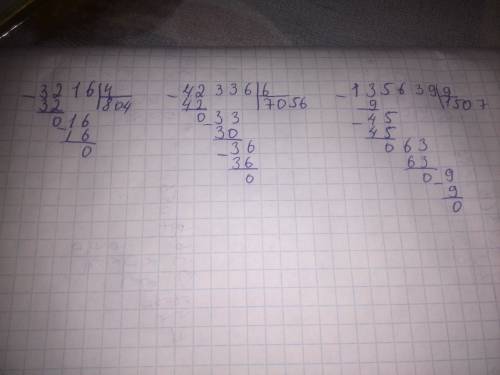 - 3216 | 4
32 | 804
0 16
- 16
0
- 42336 | 6
42 | 7056
0 33
- 30
- 36
36
0
- 135639 | 9
9 | 1507
- 45
45
0 63
63
0 - 9
9
0